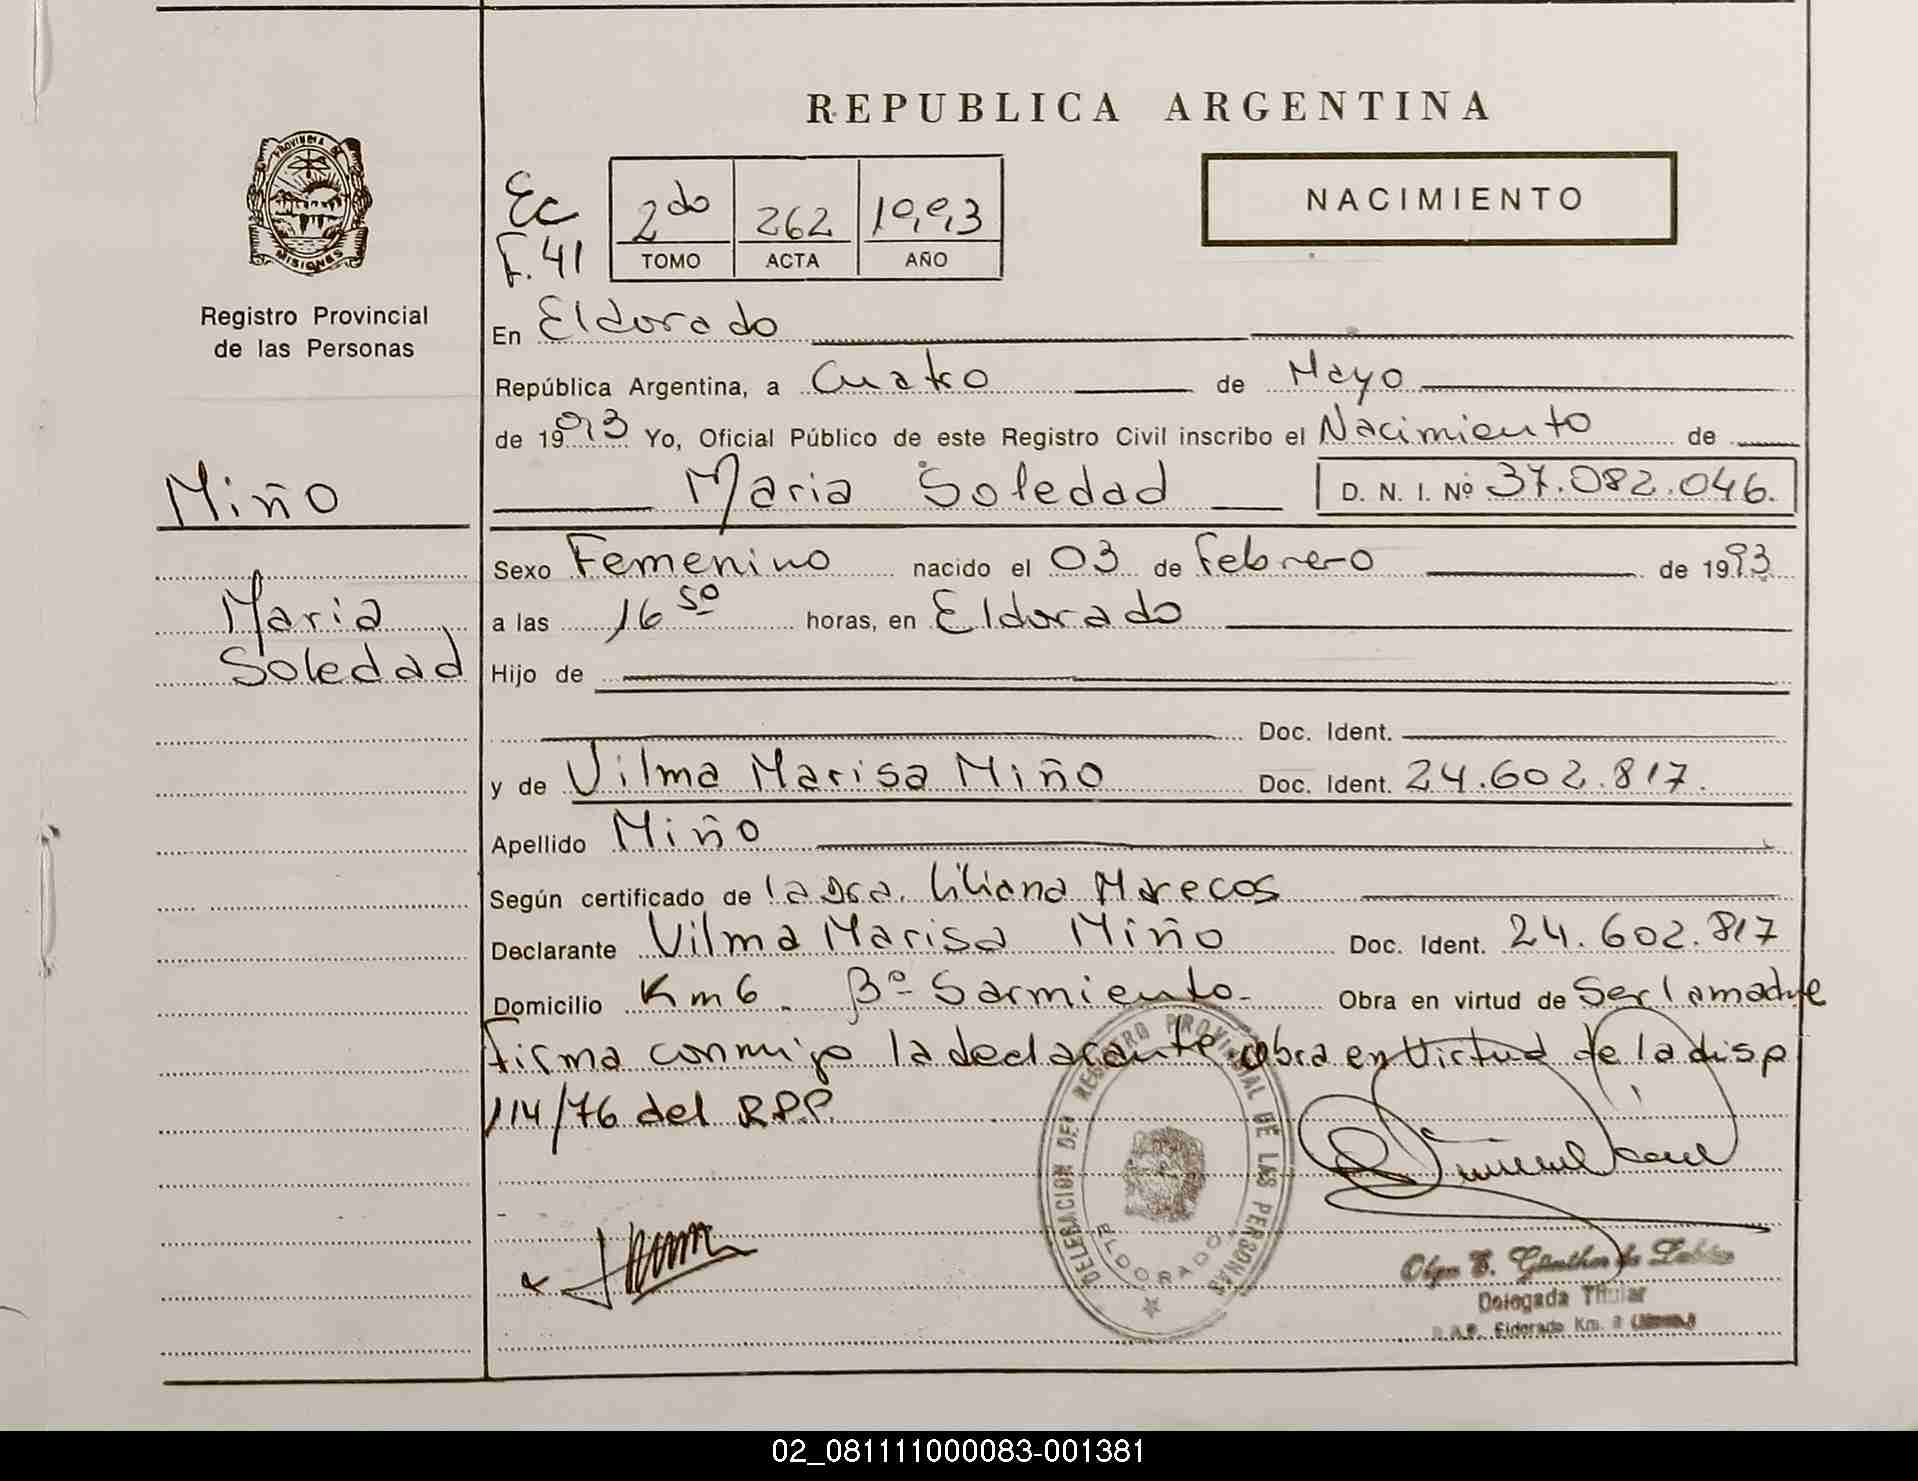 REPUBLICA ARGENTINA
PROVINCIA DE
MISIONES
Registro Provincial
de las Personas
Ec
F. 41
2do 262 1993
TOMO ACTA AÑO
NACIMIENTO
En Eldorado
República Argentina, a Cuatro de Mayo
de 1993 Yo, Oficial Público de este Registro Civil inscribo el Nacimiento de
Miño
Maria Soledad D. N. I. Nº 37.082.046.
Sexo Femenino nacido el 03 de Febrero de 1993
Maria
a las 16 50 horas, en Eldorado
Soledad
Hijo de
Doc. Ident.
y de Vilma Marisa Miño Doc. Ident. 24.602.817.
Apellido Miño
Según certificado de la Dra. Liliana Marecos
Declarante Vilma Marisa Miño Doc. Ident. 24.602.817
Domicilio Km 6 Bº Sarmiento Obra en virtud de Ser la madre
Firma conmigo la declarante obra en virtud de la disp
114/76 del R.P.P.
DELEGACION DEL REGISTRO PROVINCIAL DE LAS PERSONAS
ELDORADO
Olga E. Günther de
Delegada Titular
Eldorado Km.
02_081111000083-001381